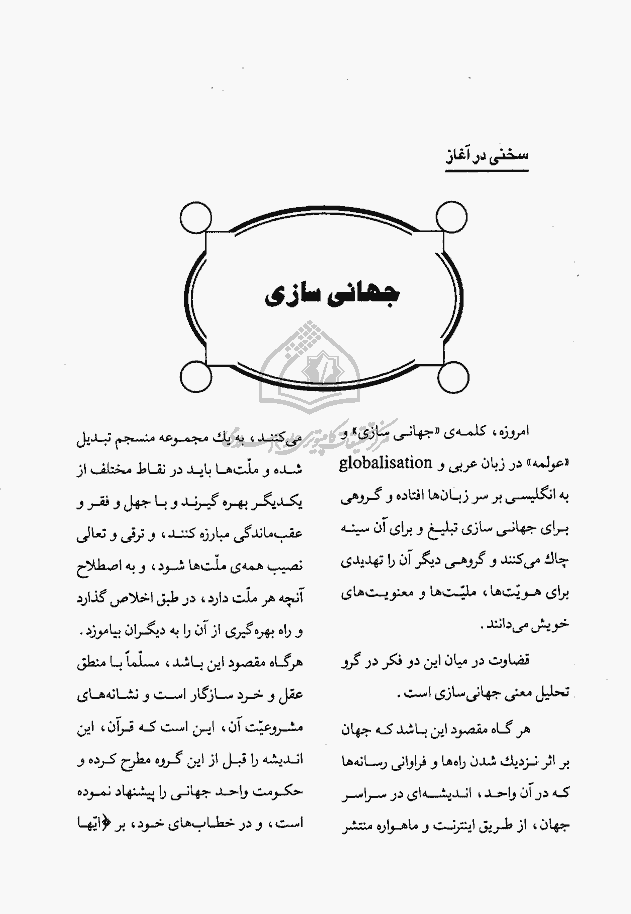 سخنی در آغاز
جهانی سازی
امروزه، کلمه‌ی «جهانی سازی» و
«عولمه» در زبان عربی و globalisation
به انگلیسی بر سر زبان‌ها افتاده و گروهی
برای جهانی سازی تبلیغ و برای آن سینه
چاك می‌کنند و گروهی دیگر آن را تهدیدی
برای هویّت‌ها، ملیّت‌ها و معنویت‌های
خویش می‌دانند.
قضاوت در میان این دو فکر در گرو
تحلیل معنی جهانی‌سازی است.
هر گاه مقصود این باشد که جهان
بر اثر نزدیك شدن راه‌ها و فراوانی رسانه‌ها
که در آن واحد، اندیشه‌ای در سراسر
جهان، از طریق اینترنت و ماهواره منتشر
می‌کنند، به یك مجموعه منسجم تبدیل
شده و ملّت‌ها باید در نقاط مختلف از
یکدیگر بهره گیرند و با جهل و فقر و
عقب‌ماندگی مبارزه کنند، و ترقی و تعالی
نصیب همه‌ی ملّت‌ها شود، و به اصطلاح
آنچه هر ملّت دارد، در طبق اخلاص گذارد
و راه بهره‌گیری از آن را به دیگران بیاموزد.
هرگاه مقصود این باشد، مسلّماً با منطق
عقل و خرد سازگار است و نشانه‌های
مشروعیّت آن، این است که قرآن، این
اندیشه را قبل از این گروه مطرح کرده و
حکومت واحد جهانی را پیشنهاد نموده
است، و در خطاب‌های خود، بر ﴿ایّها